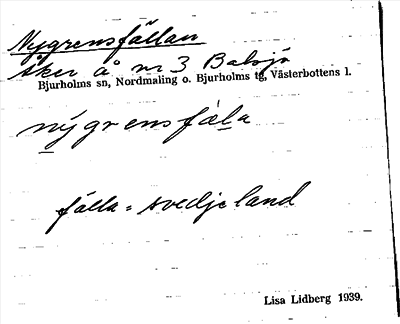 Nygrensfällan
åker å nr 3 Balsjö
Bjurholms sn, Nordmaling o. Bjurholms tg, Västerbottens l.
nýgrensfäla
fälla = svedjeland
Lisa Lidberg 1939.